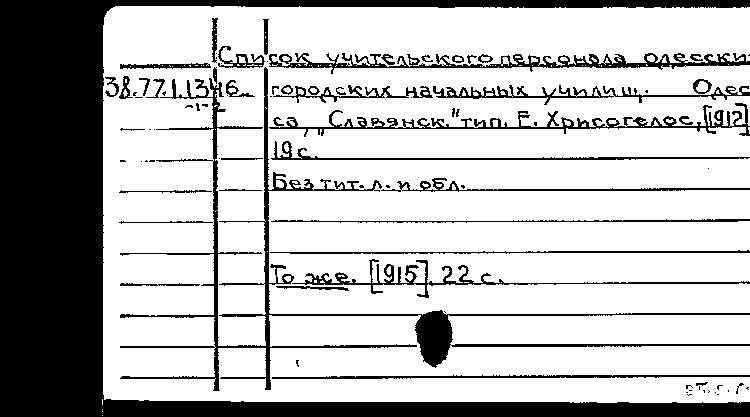 Список учительского персонала одесски
38.77.1.1346 городских начальных училищ. Одес
-1-2
са, "Славянск." тип. Е. Хрисогелос, [1912]
19 с.
Без тит. л. и обл.
То же. [1915]. 22 с.